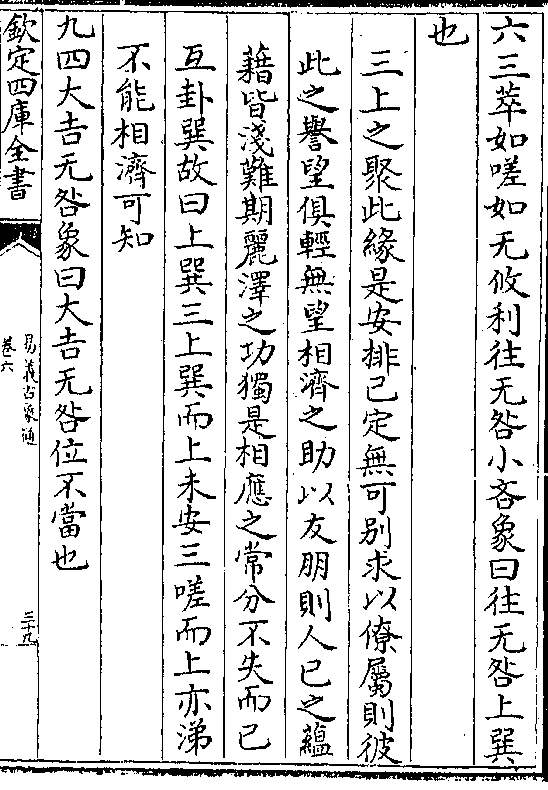 六三萃如嗟如无攸利往无咎小吝象曰往无咎上巽
也
三上之聚此緣是安排已定無可别求以僚屬則彼
此之譽望俱輕無望相濟之助以友朋則人已之蘊
藉皆淺難期麗澤之功獨是相應之常分不失而已
互卦巽故曰上巽三上巽而上未安三嗟而上亦涕
不能相濟可知
九四大吉无咎象曰大吉无咎位不當也
欽定四庫全書
易義古象通
卷六
三十九